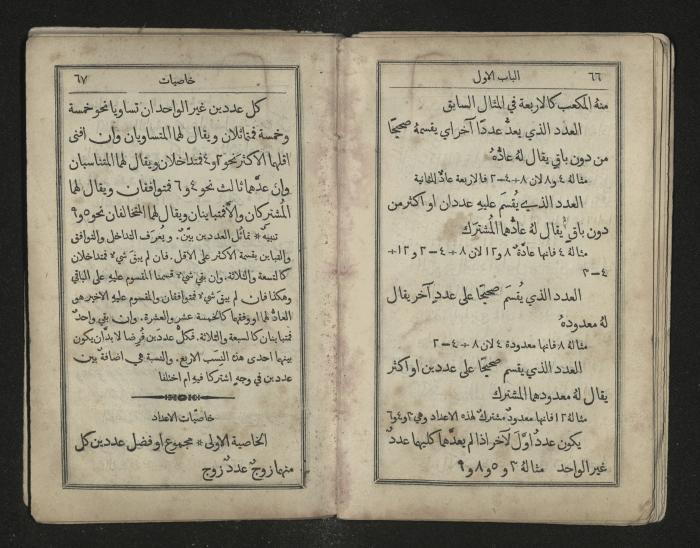 ٦٦
الباب الاول
منهُ المكعب كالاربعة في المثال السابق
العدد الذي يعدُّ عددًا آخراي يقسمهُ صحيحًا
من دون باقٍ يقال لهُ عادُّهُ
مثالهُ ٤ و٨ لان ٨÷٤=٢ فالاربعة عادٌّ للثمانية
العدد الذي يُقسَم عليهِ عددان او اكثر من
دون باقٍ يقال لهُ عادُّهما المُشترَك
مثالهُ ٤ فانها عادَّةٌ ٨ و١٢ لان ٨÷٤=٢ و١٢÷
٤=٣
العدد الذي يُقسَم صحيحًا على عددٍ آخر يقال
لهُ معدودهُ
مثالهُ ٨ فانها معدودة ٤ لان ٨÷٤=٢
العدد الذي يقسم صحيحًا على عددين او اكثر
يقال لهُ معدودهما المشترك
مثالهُ ١٢ فانها معدودٌ مشتركٌ لهذه الاعداد وهي ٢ و٤ و٦
يكون عددٌ اوَّلَ لآخر اذا لم يعدَّهما كليهما عددٌ
غير الواحد مثالهُ ٢ و٥ و٨ و٩
خاصيات
٦٧
كل عددين غير الواحد ان تساويا نحو خمسة
وخمسة فمتماثلان ويقال لهما المتساويان وان افنى
اقلهما الاكثر نحو ٢ و٤ فمتداخلان ويقال لهما المتناسبان
وان عدَّهما ثالث نحو ٤ و٦ فمتوافقان ويقال لهما
المُشتركان والَّا فمتباينان ويقال لهما المتخالفان نحو ٥ و٩
تنبيه * تماثل العددين بيِّنٌ. ويُعرَف التداخل والتوافق
والتباين بقسمة الاكثر على الاقل. فان لم يبقَ شيءٌ فمتداخلان
كالتسعة والثلاثة. وان بقي شيءٌ قسمنا المقسوم عليهِ على الباقي
وهكذا فان لم يبقَ شيءٌ فمتوافقان والمقسوم عليهِ الاخير هو
العادُّ لهما او وفقهما كالخمسة عشر والعشرة. وان بقي واحدٌ
فمتباينان كالسبعة والثلاثة. فكلُّ عددين فُرِضا لا بدَّ ان يكون
بينهما احدى هذه النسب الاربع. والنسبة هي اضافةٌ بين
عددين في وجهٍ اشتركا فيهِ ام اختلفا
خاصيَّات الاعداد
الخاصية الاولى * مجموع او فضل عددين كل
منهما زوجٌ عددٌ زوج